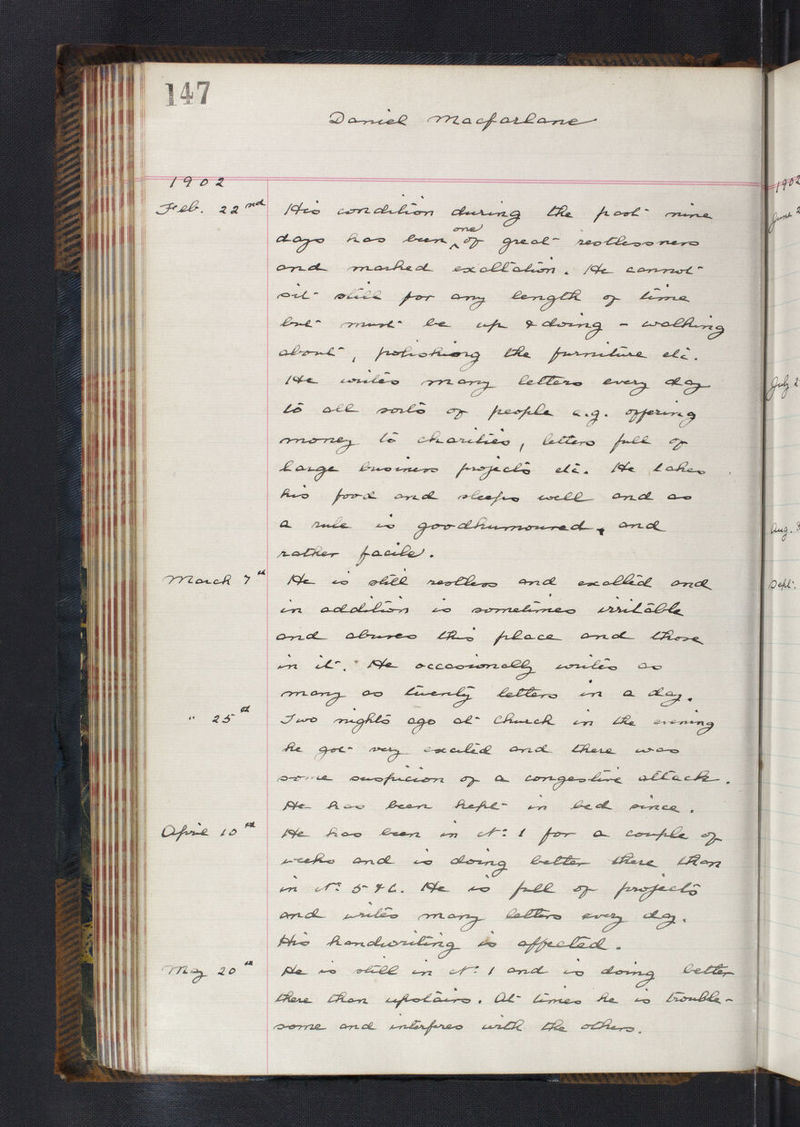 147
Daniel Macfarlane
1902
Feb. 22nd His condition during the past nine
days has been one of great restlessness
and marked exaltation. He cannot
sit still for any length of time
but must be up & doing - walking
about, polishing the furniture etc.
He writes many letters every day
to all sorts of people e.g. offering
money to charities, letters full of
large business projects etc. He takes
his food and sleeps well and as
a rule is goodhumoured, and
rather facile.
March 7th He is still restless and exalted and
in addition is sometimes irritable
and abuses this place and those
in it. He occasionally writes as
many as twenty letters in a day.
" 25th Two nights ago at church in the evening
he got very excited and there was
some suspicion of a congestive attack.
He has been kept in bed since.
April 10th He has been in No. 1 for a couple of
weeks and is doing better there than
in No. 5 & 6. He is full of projects
and writes many letters every day.
His handwriting is affected.
May 20th He is still in No. 1 and is doing better
there than upstairs. At times he is trouble-
some and interferes with the others.
1902
June 2
July 2
Aug. 8
Sept.